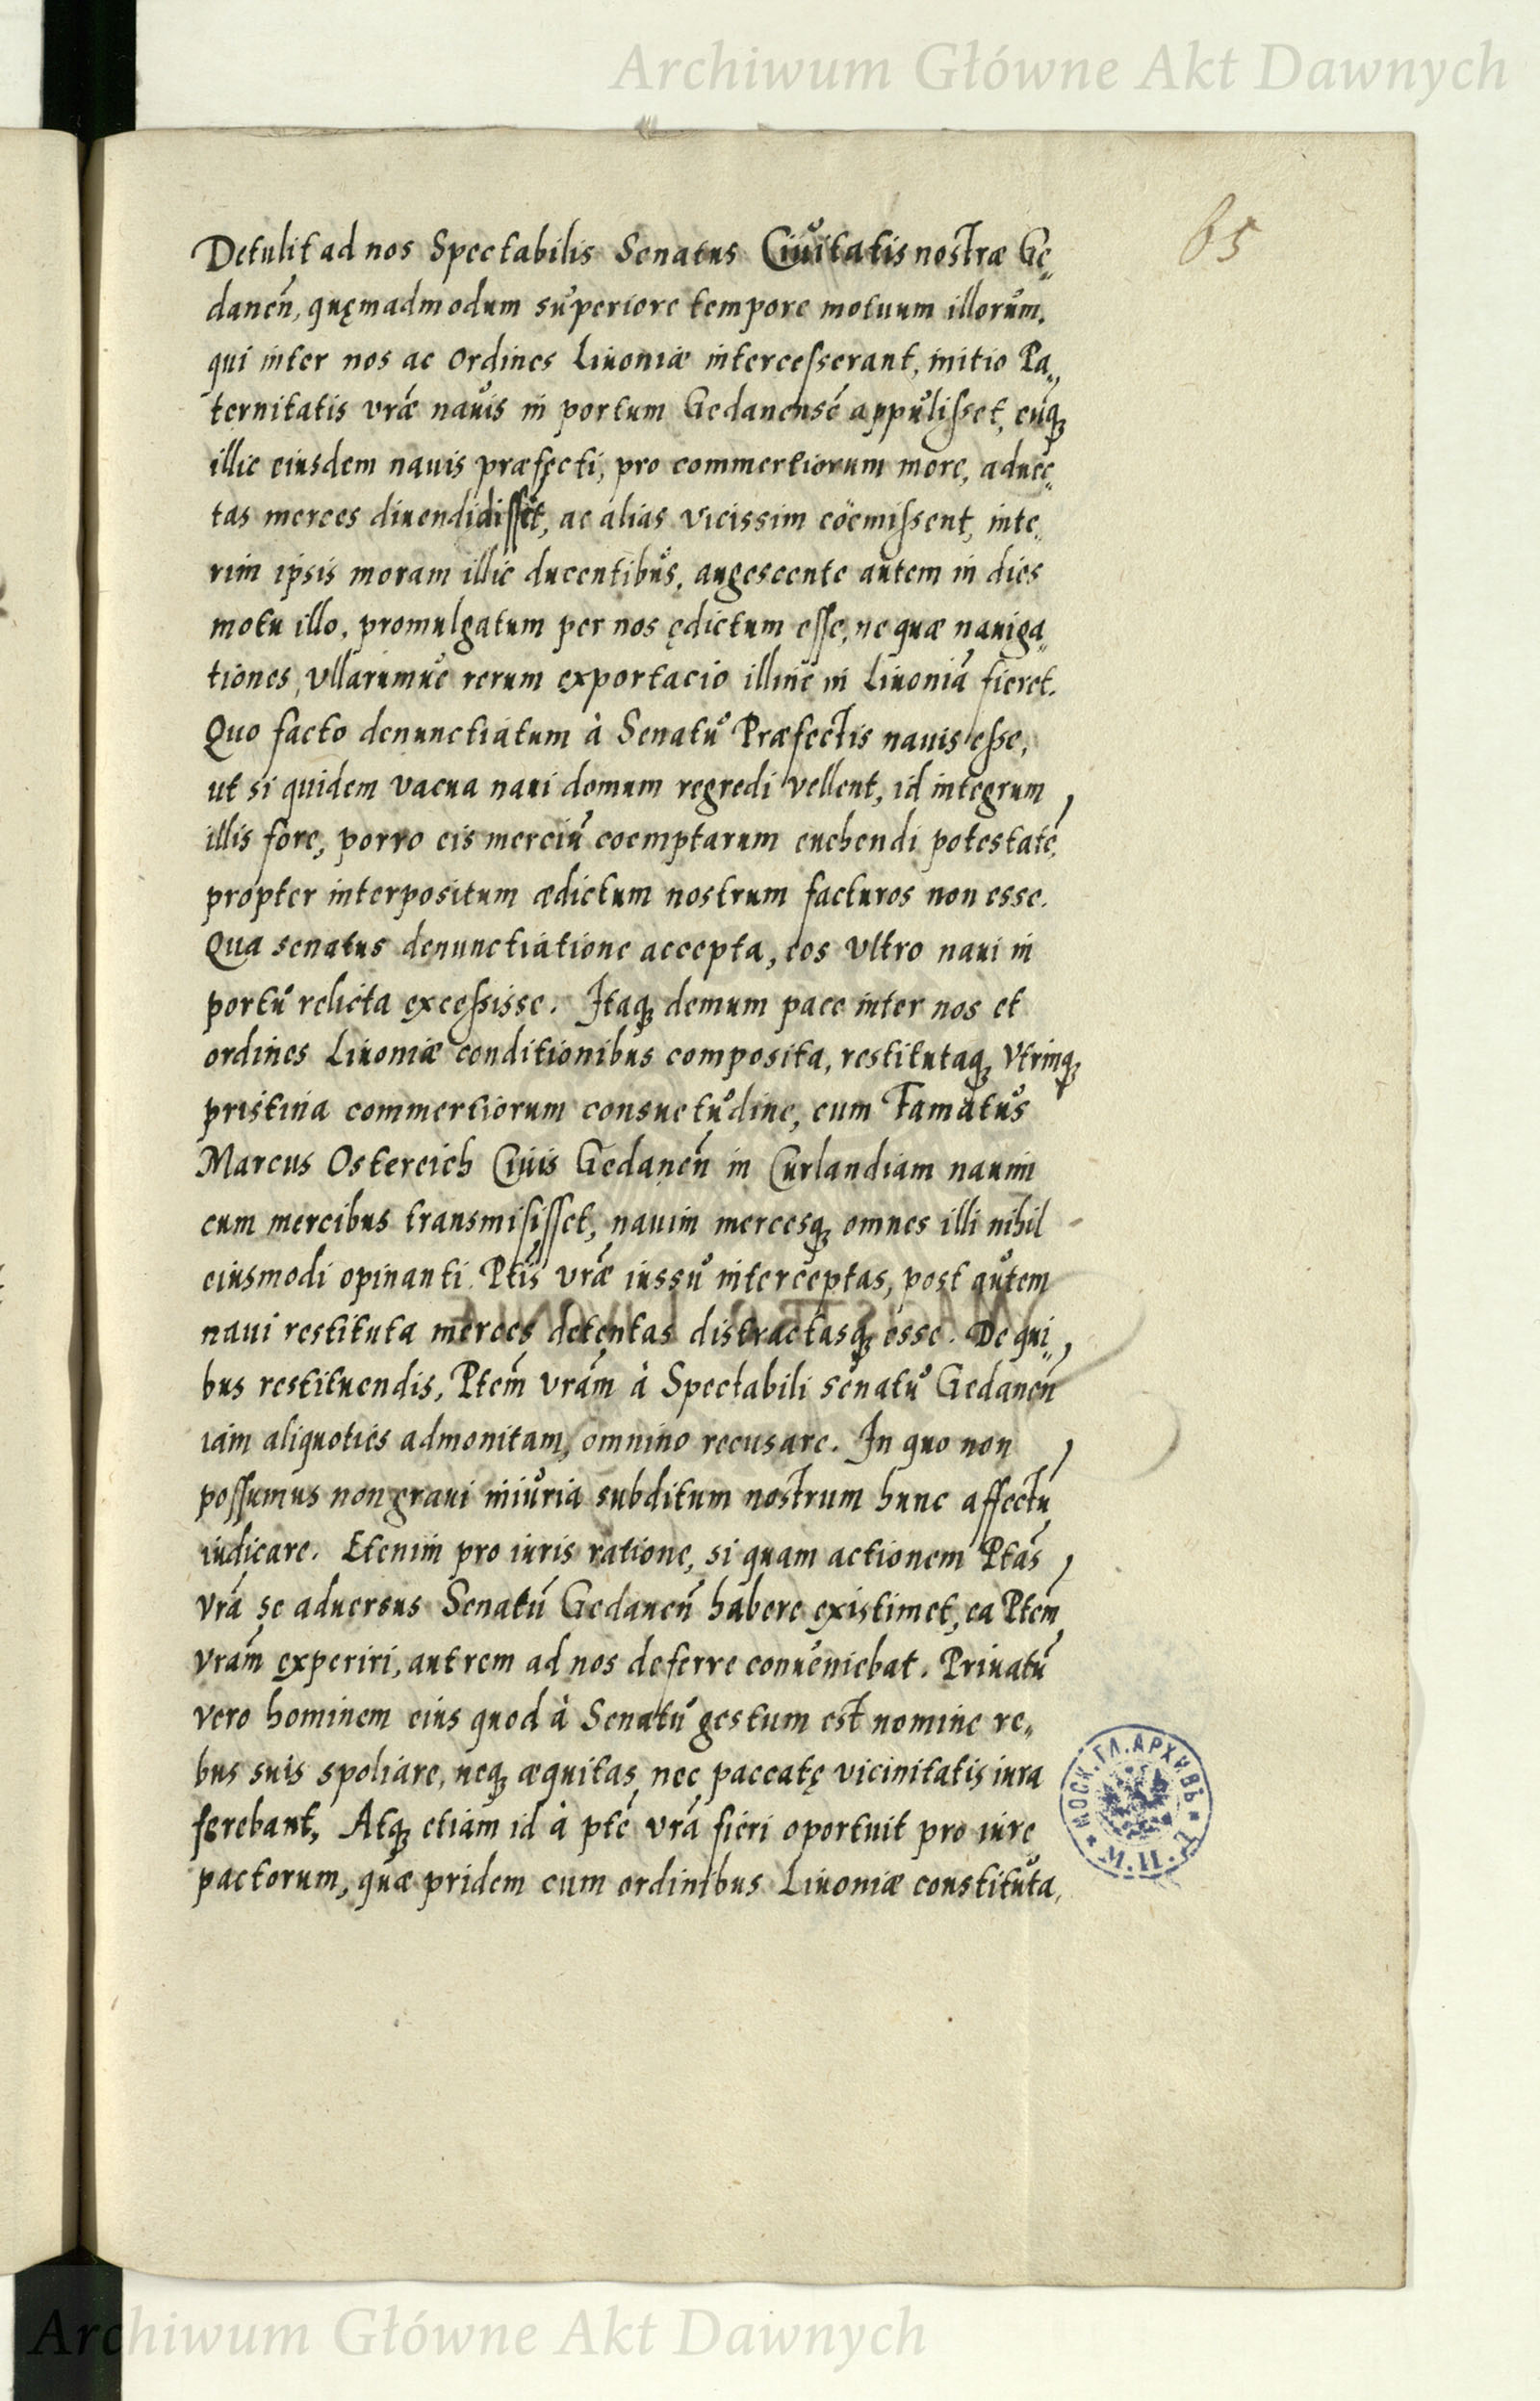 Archiwum Główne Akt Dawnych
65
Detulit ad nos Spectabilis Senatus Ciuitatis nostræ Ge„
danen̄, quęmadmodum superiore tempore motuum illorum,
qui inter nos ac Ordines Liuoniæ intercesserant, initio Pa„
ternitatis vræ nauis in portum Gedanensē appulisset, cuq́
illic eiusdem nauis præfecti, pro commertiorum more, aduec„
tas merces diuendidisset, ac alias vicissim cöemissent, inte„
rim ipsis moram illic ducentibus, augescente autem in dies
motu illo, promulgatum per nos ędictum esse, ne quæ nauiga„
tiones, vllarumue rerum exportacio illinc in Liuoniā fieret.
Quo facto denunctiatum à Senatu Præfectis nauis esse,
ut si quidem vacua naui domum regredi vellent, id integrum
illis fore, porro eis merciū coemptarum euehendi potestatē,
propter interpositum ædictum nostrum facturos non esse.
Qua senatus denunctiatione accepta, eos vltro naui in
portu relicta excessisse. Itaq demum pace inter nos et
ordines Liuoniæ conditionibus composita, restitutaq Vtrinq
pristina commertiorum consuetudine, cum Famatus
Marcus Ostereich Ciuis Gedanen̄ in Curlandiam nauim
cum mercibus transmisisset, nauim mercesq omnes illi nihil
eiusmodi opinanti Ptis vræ iussu interceptas, post autem
naui restituta merces detentas distractasq esse. De qui„
bus restituendis, Ptem̄ vram̄ à Spectabili senatu Gedanen̄
iam aliquoties admonitam, omnino recusare. In quo non
possumus non graui iniuria subditum nostrum hunc affectū
iudicare. Etenim pro iuris ratione, si quam actionem Ptas
vrā se aduersus Senatū Gedanen̄ habere existimet, ea Ptem̄
vram̄ experiri, aut rem ad nos deferre conueniebat. Priuatū
vero hominem eius quod à Senatu gestum est nomine re„
bus suis spoliare, neq æquitas, nec paccatę vicinitatis iura
ferebant, Atq etiam id à ptē vrā fieri oportuit pro iure
pactorum, quæ pridem cum ordinibus Liuoniæ constituta,
МОСК. ГЛ. АРХИВЪ
М. И. Д.
Archiwum Główne Akt Dawnych